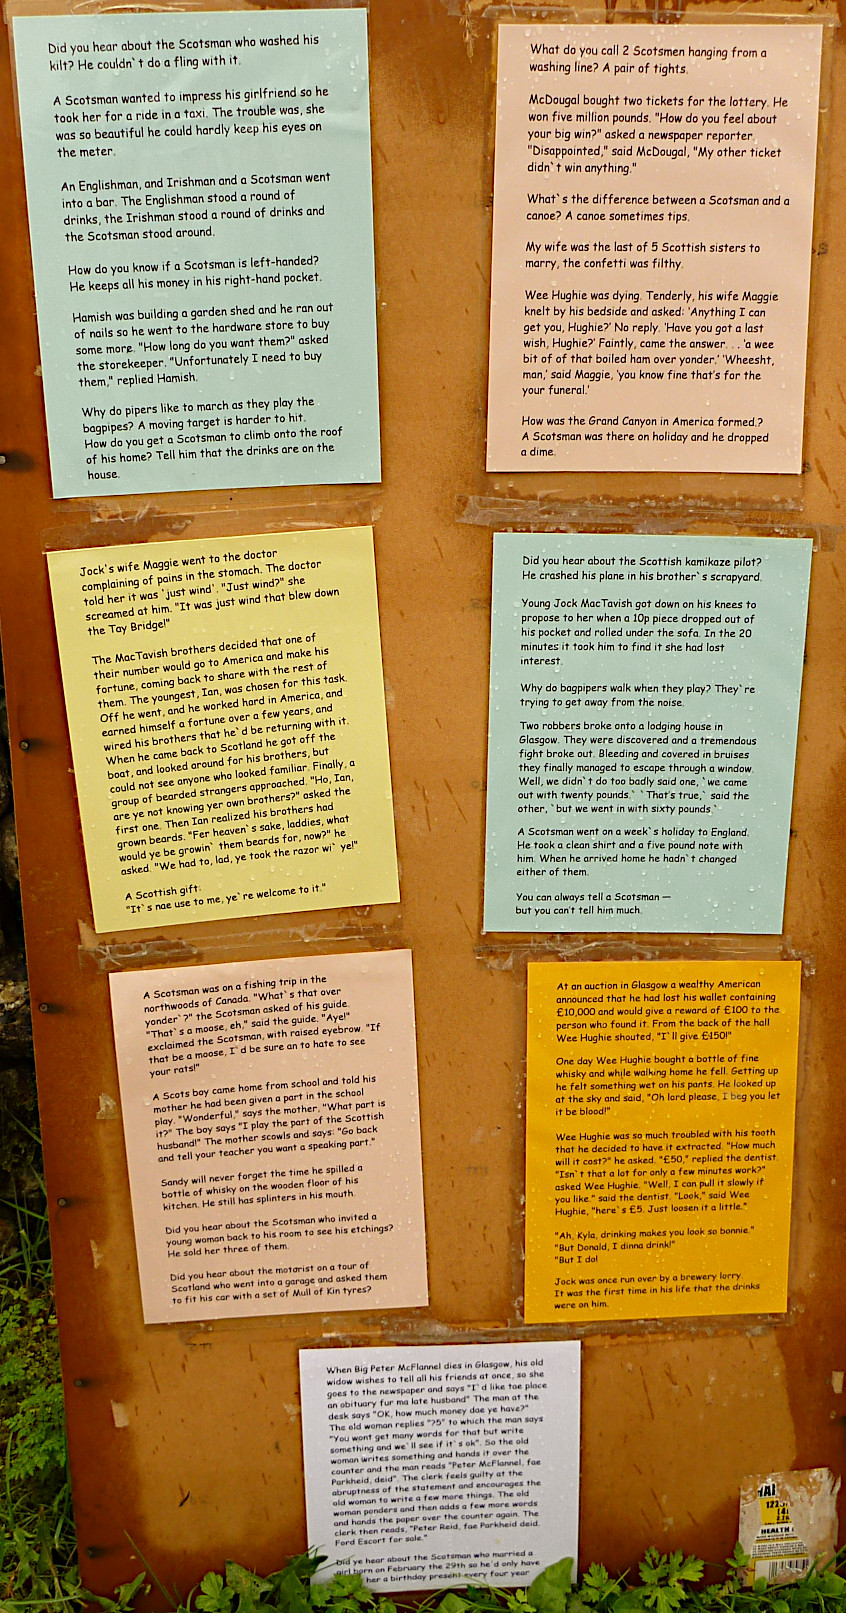 Did you hear about the Scotsman who washed his
kilt? He couldn`t do a fling with it.
A Scotsman wanted to impress his girlfriend so he
took her for a ride in a taxi. The trouble was, she
was so beautiful he could hardly keep his eyes on
the meter.
An Englishman, and Irishman and a Scotsman went
into a bar. The Englishman stood a round of
drinks, the Irishman stood a round of drinks and
the Scotsman stood around.
How do you know if a Scotsman is left-handed?
He keeps all his money in his right-hand pocket.
Hamish was building a garden shed and he ran out
of nails so he went to the hardware store to buy
some more. "How long do you want them?" asked
the storekeeper. "Unfortunately I need to buy
them," replied Hamish.
Why do pipers like to march as they play the
bagpipes? A moving target is harder to hit.
How do you get a Scotsman to climb onto the roof
of his home? Tell him that the drinks are on the
house.
What do you call 2 Scotsmen hanging from a
washing line? A pair of tights.
McDougal bought two tickets for the lottery. He
won five million pounds. "How do you feel about
your big win?" asked a newspaper reporter.
"Disappointed," said McDougal, "My other ticket
didn`t win anything."
What`s the difference between a Scotsman and a
canoe? A canoe sometimes tips.
My wife was the last of 5 Scottish sisters to
marry, the confetti was filthy.
Wee Hughie was dying. Tenderly, his wife Maggie
knelt by his bedside and asked: 'Anything I can
get you, Hughie?' No reply. 'Have you got a last
wish, Hughie?' Faintly, came the answer. . . 'a wee
bit of of that boiled ham over yonder.' 'Wheesht,
man,' said Maggie, 'you know fine that's for the
your funeral.'
How was the Grand Canyon in America formed.?
A Scotsman was there on holiday and he dropped
a dime.
Jock`s wife Maggie went to the doctor
complaining of pains in the stomach. The doctor
told her it was 'just wind'. "Just wind?" she
screamed at him. "It was just wind that blew down
the Tay Bridge!"
The MacTavish brothers decided that one of
their number would go to America and make his
fortune, coming back to share with the rest of
them. The youngest, Ian, was chosen for this task.
Off he went, and he worked hard in America, and
earned himself a fortune over a few years, and
wired his brothers that he`d be returning with it.
When he came back to Scotland he got off the
boat, and looked around for his brothers, but
could not see anyone who looked familiar. Finally, a
group of bearded strangers approached. "Ho, Ian,
are ye not knowing yer own brothers?" asked the
first one. Then Ian realized his brothers had
grown beards. "Fer heaven`s sake, laddies, what
would ye be growin` them beards for, now?" he
asked. "We had to, lad, ye took the razor wi` ye!"
A Scottish gift:
"It`s nae use to me, ye`re welcome to it."
Did you hear about the Scottish kamikaze pilot?
He crashed his plane in his brother`s scrapyard.
Young Jock MacTavish got down on his knees to
propose to her when a 10p piece dropped out of
his pocket and rolled under the sofa. In the 20
minutes it took him to find it she had lost
interest.
Why do bagpipers walk when they play? They`re
trying to get away from the noise.
Two robbers broke onto a lodging house in
Glasgow. They were discovered and a tremendous
fight broke out. Bleeding and covered in bruises
they finally managed to escape through a window.
Well, we didn`t do too badly said one, `we came
out with twenty pounds.` `That's true,` said the
other, `but we went in with sixty pounds.`
A Scotsman went on a week`s holiday to England.
He took a clean shirt and a five pound note with
him. When he arrived home he hadn`t changed
either of them.
You can always tell a Scotsman —
but you can't tell him much.
A Scotsman was on a fishing trip in the
northwoods of Canada. "What`s that over
yonder`?" the Scotsman asked of his guide.
"That`s a moose, eh," said the guide. "Aye!"
exclaimed the Scotsman, with raised eyebrow. "If
that be a moose, I`d be sure an to hate to see
your rats!"
A Scots boy came home from school and told his
mother he had been given a part in the school
play. "Wonderful," says the mother, "What part is
it?" The boy says "I play the part of the Scottish
husband!" The mother scowls and says: "Go back
and tell your teacher you want a speaking part."
Sandy will never forget the time he spilled a
bottle of whisky on the wooden floor of his
kitchen. He still has splinters in his mouth.
Did you hear about the Scotsman who invited a
young woman back to his room to see his etchings?
He sold her three of them.
Did you hear about the motorist on a tour of
Scotland who went into a garage and asked them
to fit his car with a set of Mull of Kin tyres?
At an auction in Glasgow a wealthy American
announced that he had lost his wallet containing
£10,000 and would give a reward of £100 to the
person who found it. From the back of the hall
Wee Hughie shouted, "I`ll give £150!"
One day Wee Hughie bought a bottle of fine
whisky and while walking home he fell. Getting up
he felt something wet on his pants. He looked up
at the sky and said, "Oh lord please, I beg you let
it be blood!"
Wee Hughie was so much troubled with his tooth
that he decided to have it extracted. "How much
will it cost?" he asked. "£50," replied the dentist.
"Isn`t that a lot for only a few minutes work?"
asked Wee Hughie. "Well, I can pull it slowly if
you like." said the dentist. "Look," said Wee
Hughie, "here`s £5. Just loosen it a little."
"Ah, Kyla, drinking makes you look so bonnie."
"But Donald, I dinna drink!"
"But I do!
Jock was once run over by a brewery lorry.
It was the first time in his life that the drinks
were on him.
When Big Peter McFlannel dies in Glasgow, his old
widow wishes to tell all his friends at once, so she
goes to the newspaper and says "I`d like tae place
an obituary fur ma late husband" The man at the
desk says "OK, how much money dae ye have?"
The old woman replies "?5" to which the man says
"You wont get many words for that but write
something and we`ll see if it`s ok". So the old
woman writes something and hands it over the
counter and the man reads "Peter McFlannel, fae
Parkheid, deid". The clerk feels guilty at the
abruptness of the statement and encourages the
old woman to write a few more things. The old
woman ponders and then adds a few more words
and hands the paper over the counter again. The
clerk then reads, "Peter Reid, fae Parkheid deid.
Ford Escort for sale."
Did ye hear about the Scotsman who married a
girl born on February the 29th so he'd only have
her a birthday present every four year
HEALTH